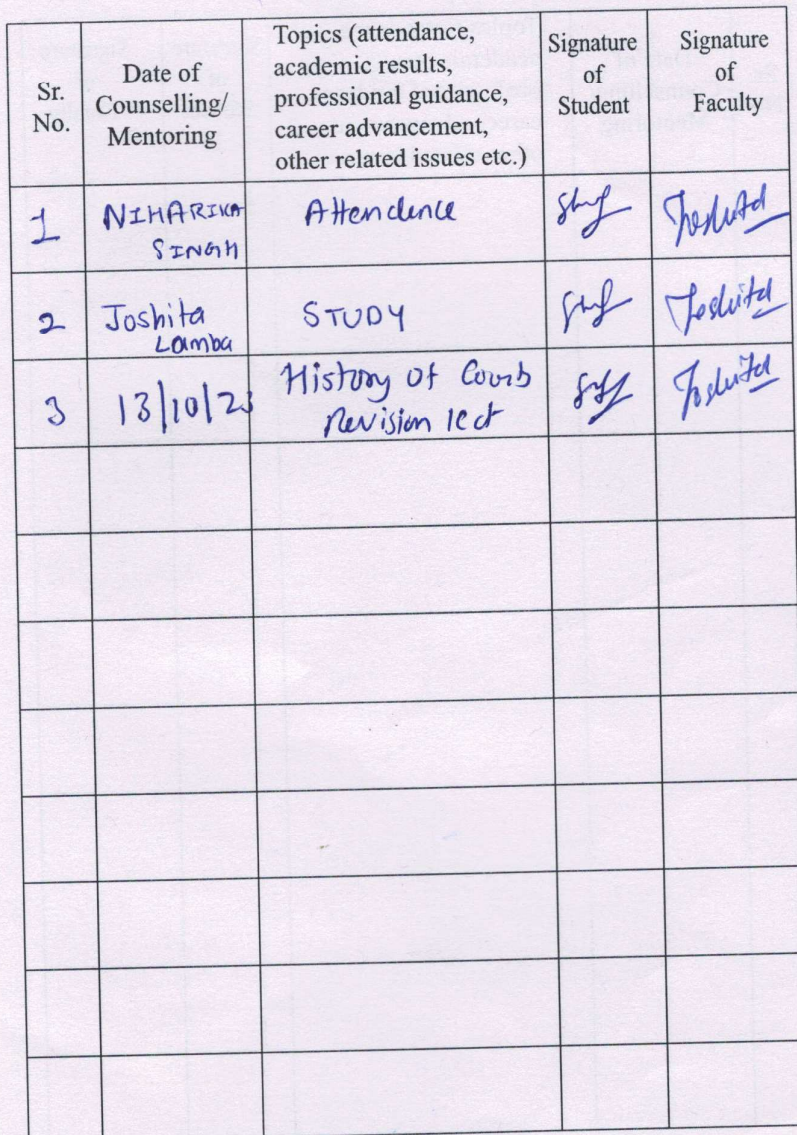 Sr. No.
Date of Counselling/ Mentoring
Topics (attendance, academic results, professional guidance, career advancement, other related issues etc.)
Signature of Student
Signature of Faculty
1 NIHARIKA SINGH Attendence
2 Joshita Lamba STUDY Joshita
3 13/10/23 History Of Courts Revision lect Joshita